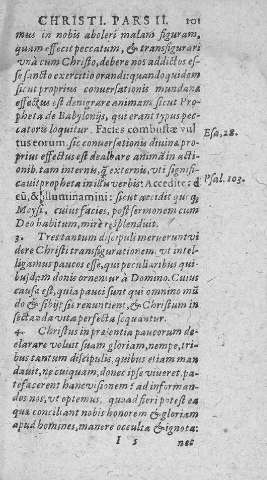 CHRISTI. PARS II. 101
mus in nobis aboleri malam figuram,
quam effecit peccatum, & transfigurari
vnà cum Christo, debere nos addictos es-
se sancto exercitio orandi: quandoquidem
sicut proprius conuersationis mundanæ
effectus est denigrare animam sicut Pro-
pheta de Babylonijs, qui erant typus pec-
catoris loquitur. Facies combustæ vul
tus eorum, sic conuersationis diuinæ pro-
prius effectus est dealbare animam in acti-
onib. tam internis, q̃ externis, vti signifi-
cauit propheta in illis verbis: Accedite ad
eū, & illuminamini: sicut accidit
Moysi, cuius facies, post sermonem cum
Deo habitum, mirè resplenduit.
Esa, 28.
Psal. 103.
3. Tres tantum discipuli meruerunt vi
dere Christi transfigurationem, vt intel-
ligamus paucos esse, qui peculiaribus qui-
busdam donis ornentur à Domino. Cuius
causa est, quia pauci sunt qui omnino mū
do & sibijpsis renuntient, & Christum in
sectanda vita perfecta sequantur.
4. Christus in præsentia paucorum de-
clarare voluit suam gloriam, nempe, tri-
bus tantum discipulis, quibus etiam man
dauit, ne cuiquam, donec ipse viueret, pa-
tefacerent hanc visionem: ad informan-
dos nos, vt optemus, quoad fieri potest ea
quæ conciliant nobis honorem & gloriam
apud homines, manere occulta & ignota:
I 5 nec